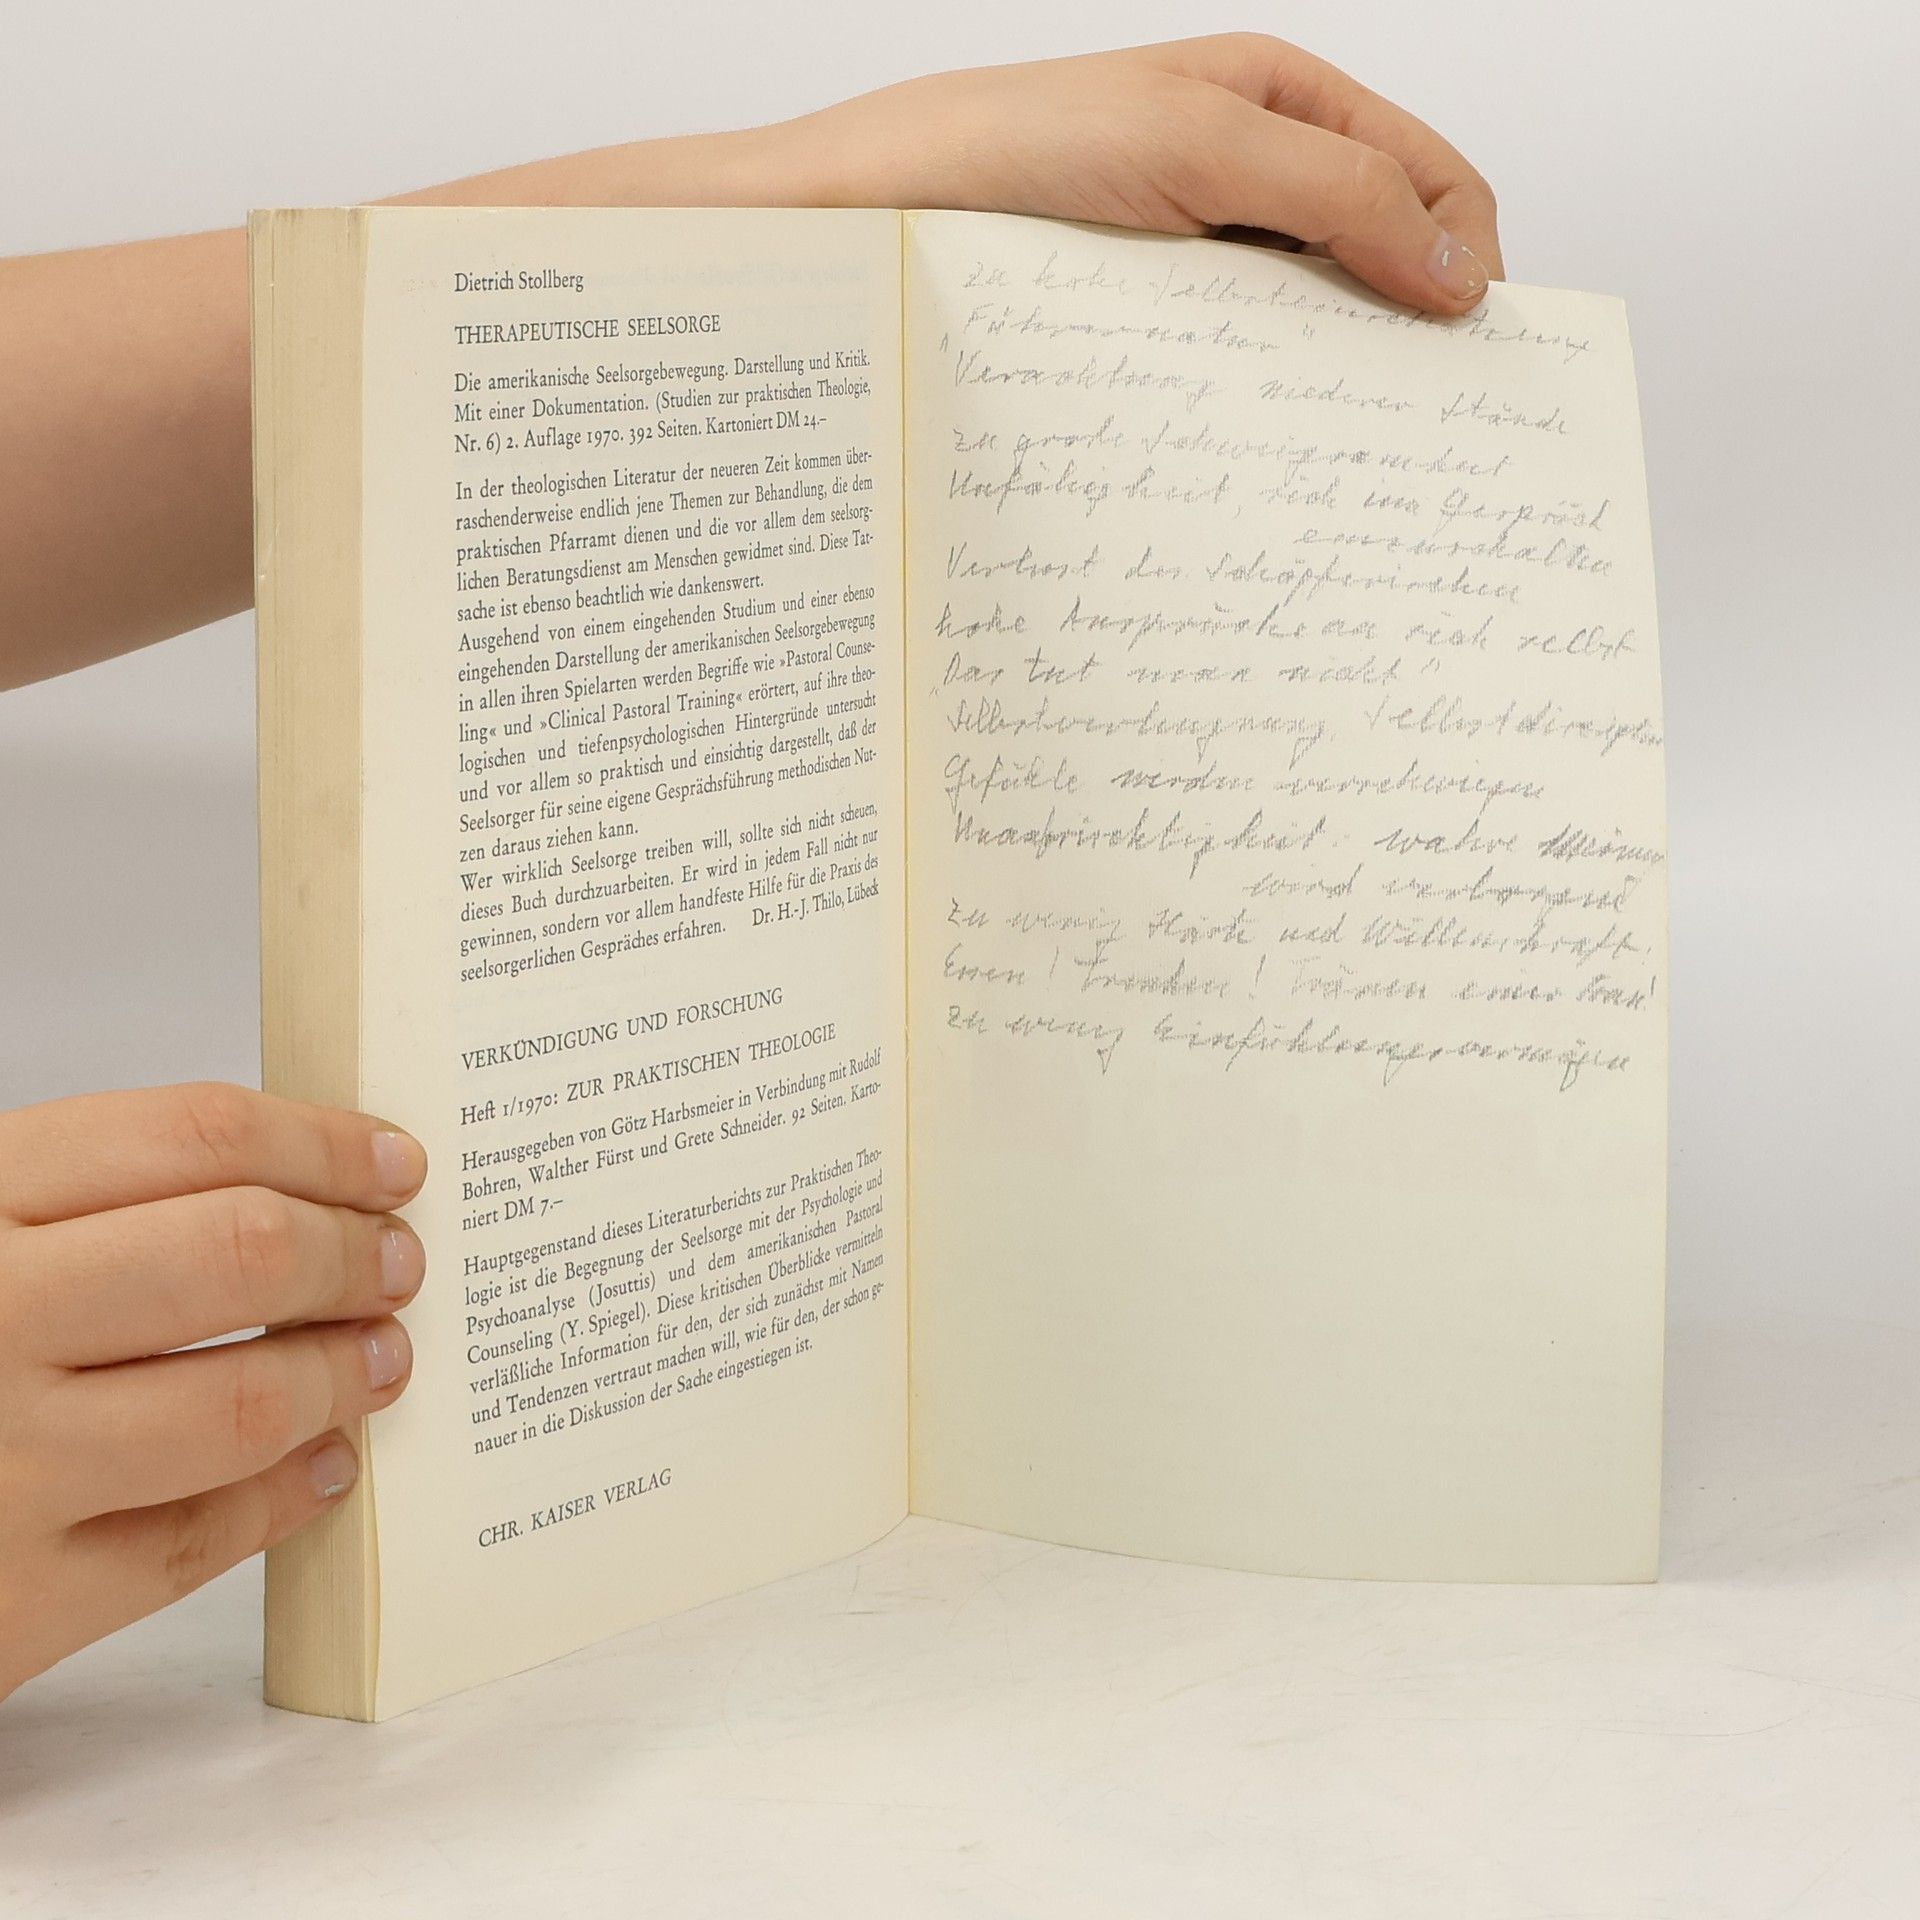 Dietrich Stollberg
THERAPEUTISCHE SEELSORGE
Die amerikanische Seelsorgebewegung. Darstellung und Kritik.
Mit einer Dokumentation. (Studien zur praktischen Theologie,
Nr. 6) 2. Auflage 1970. 392 Seiten. Kartoniert DM 24.–
In der theologischen Literatur der neueren Zeit kommen über-
raschenderweise endlich jene Themen zur Behandlung, die dem
praktischen Pfarramt dienen und die vor allem dem seelsorg-
lichen Beratungsdienst am Menschen gewidmet sind. Diese Tat-
sache ist ebenso beachtlich wie dankenswert.
Ausgehend von einem eingehenden Studium und einer ebenso
eingehenden Darstellung der amerikanischen Seelsorgebewegung
in allen ihren Spielarten werden Begriffe wie »Pastoral Counse-
ling« und »Clinical Pastoral Training« erörtert, auf ihre theo-
logischen und tiefenpsychologischen Hintergründe untersucht
und vor allem so praktisch und einsichtig dargestellt, daß der
Seelsorger für seine eigene Gesprächsführung methodischen Nut-
zen daraus ziehen kann.
Wer wirklich Seelsorge treiben will, sollte sich nicht scheuen,
dieses Buch durchzuarbeiten. Er wird in jedem Fall nicht nur
gewinnen, sondern vor allem handfeste Hilfe für die Praxis des
seelsorgerlichen Gespräches erfahren. Dr. H.-J. Thilo, Lübeck
VERKÜNDIGUNG UND FORSCHUNG
Heft 1/1970: ZUR PRAKTISCHEN THEOLOGIE
Herausgegeben von Götz Harbsmeier in Verbindung mit Rudolf
Bohren, Walther Fürst und Grete Schneider. 92 Seiten. Karto-
niert DM 7.–
Hauptgegenstand dieses Literaturberichts zur Praktischen Theo-
logie ist die Begegnung der Seelsorge mit der Psychologie und
Psychoanalyse (Josuttis) und dem amerikanischen Pastoral
Counseling (Y. Spiegel). Diese kritischen Überblicke vermitteln
verläßliche Information für den, der sich zunächst mit Namen
und Tendenzen vertraut machen will, wie für den, der schon ge-
nauer in die Diskussion der Sache eingestiegen ist.
CHR. KAISER VERLAG
zu hohe Selbsteinschätzung
„Führernatur"
Verachtung niederer Stände
zu große Schweigsamkeit
Unfähigkeit, sich im Gespräch
einzuschalten
Verlust des Schöpferischen
hohe Ansprüche an sich selbst
„Das tut man nicht"
Selbstverleugnung, Selbstdisziplin
Gefühle werden verschwiegen
Unaufrichtigkeit. wahre Meinung
wird verborgen
zu wenig Härte und Willenskraft.
Essen! Trinken! Tränen einer Frau!
zu wenig Einfühlungsvermögen